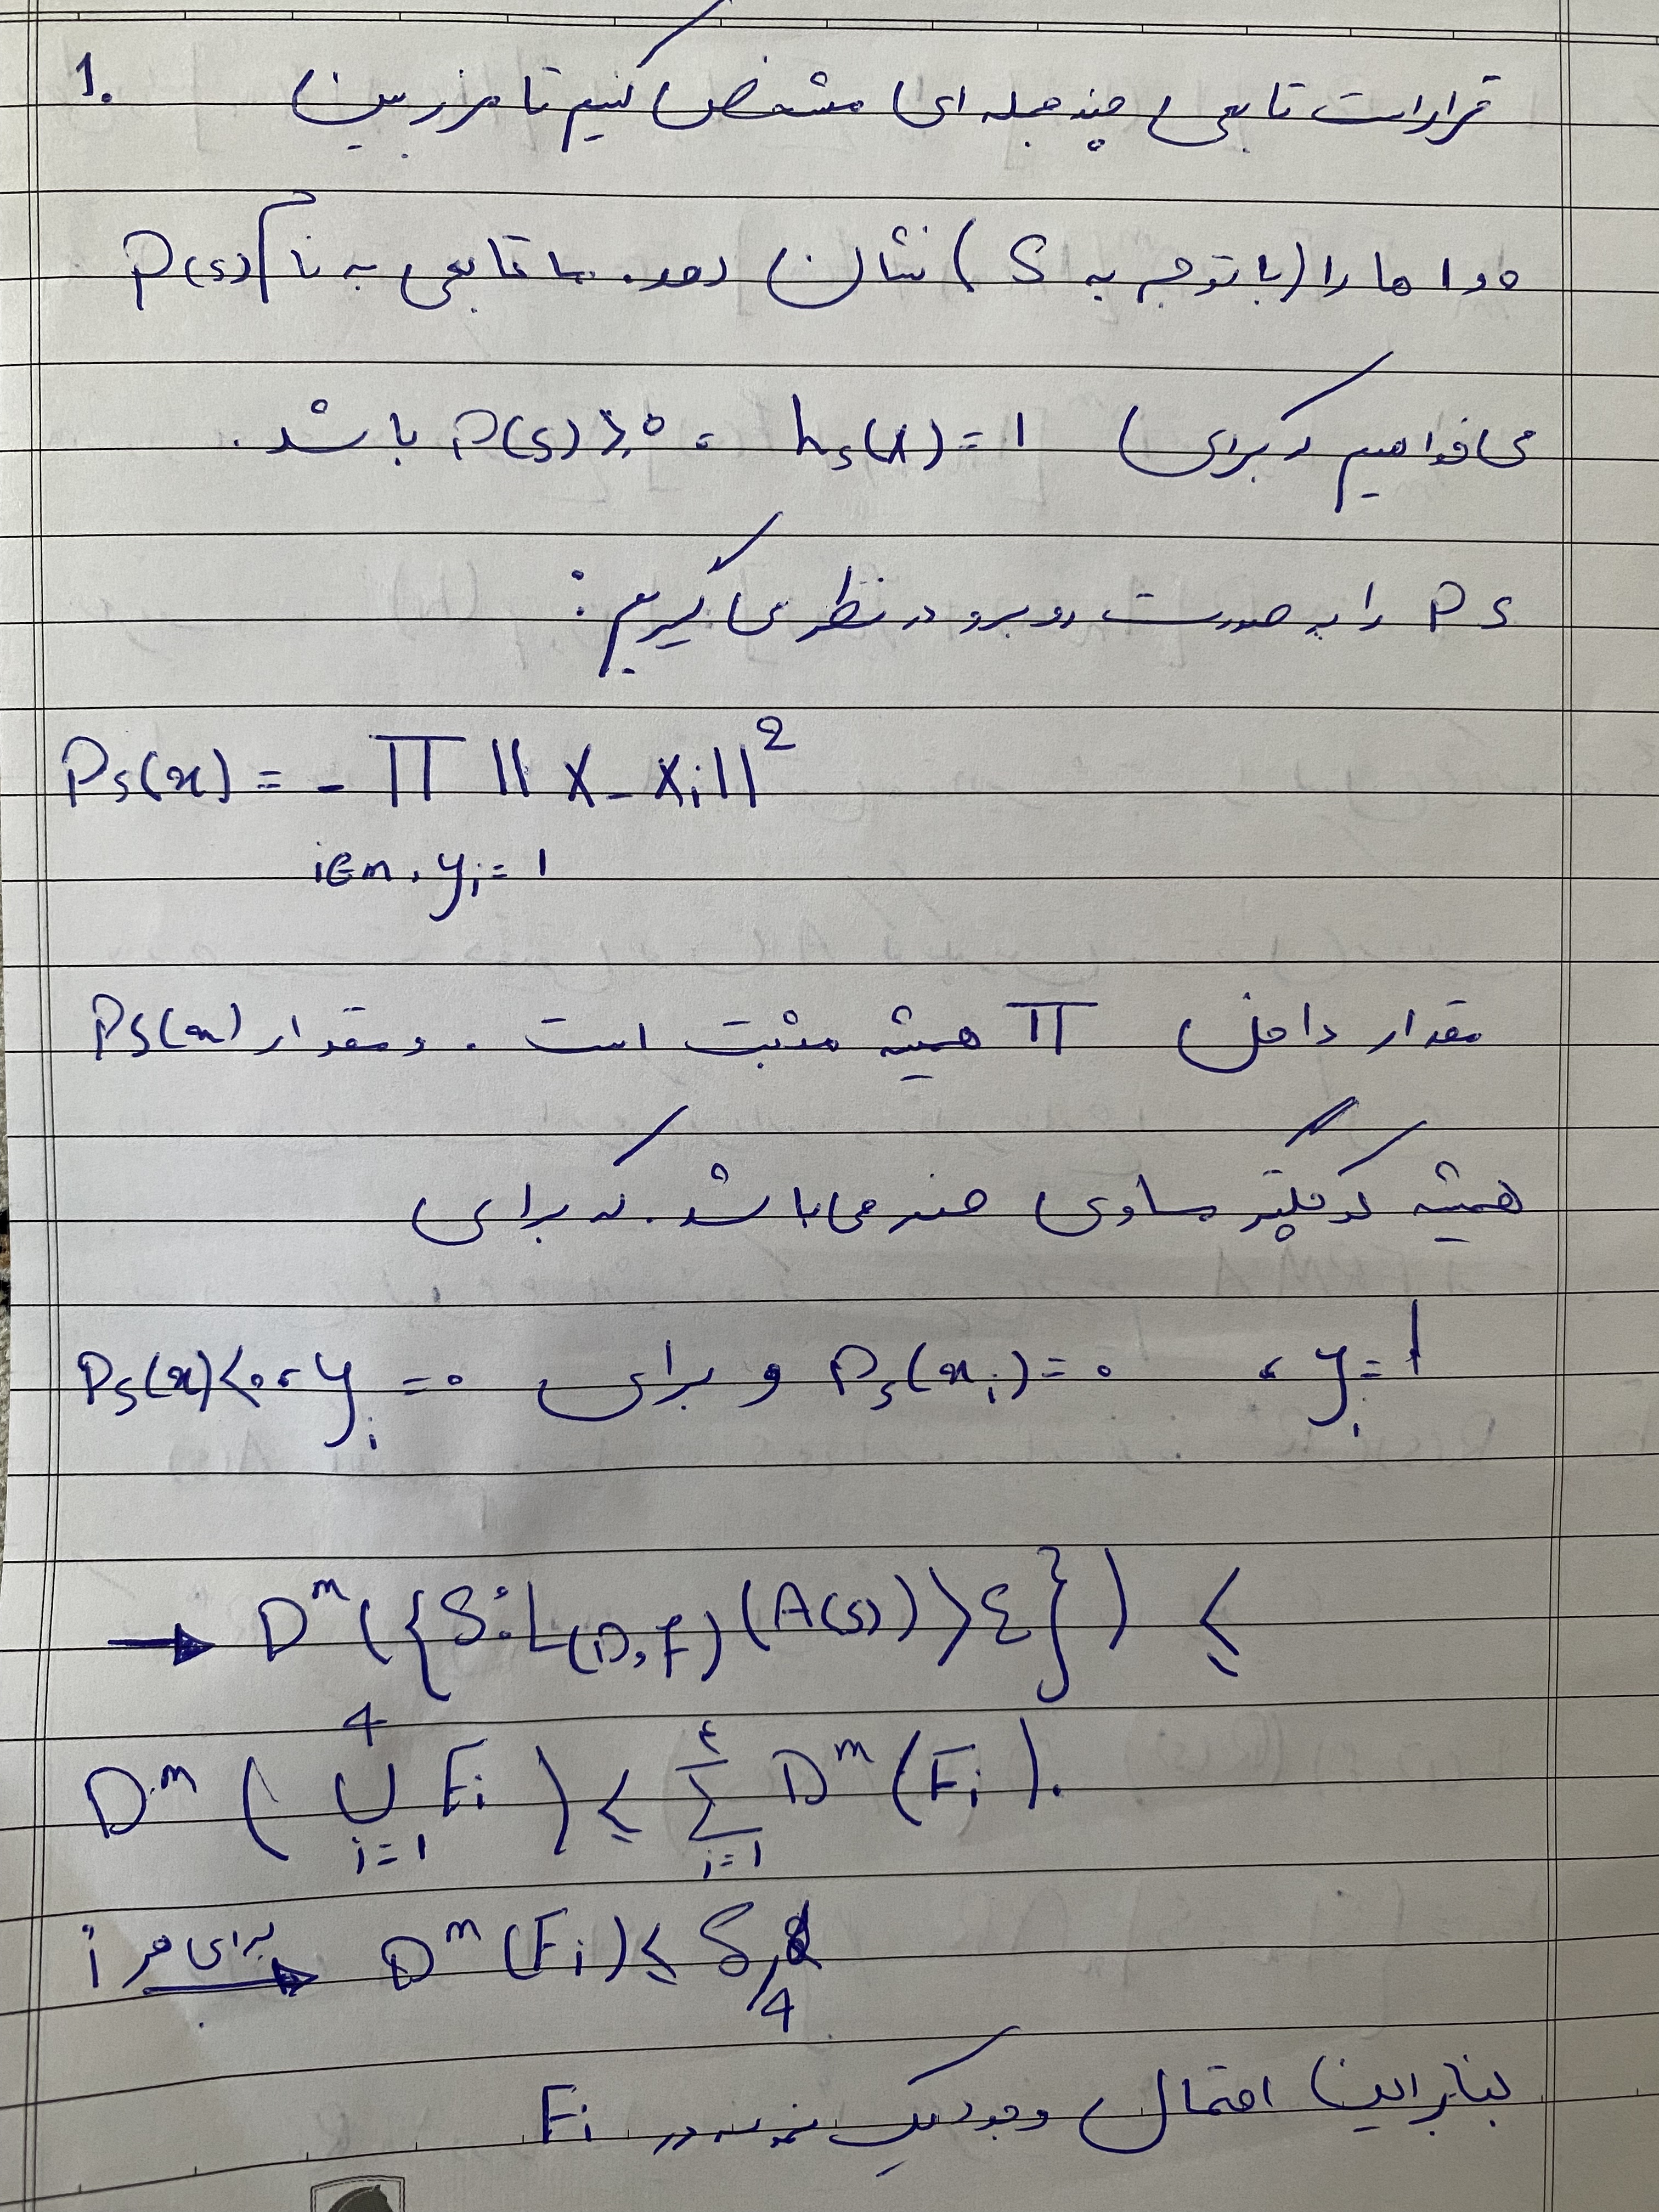 1. قرار است تابعی چند جمله ای مشخص کنیم تا مرز بین
0 و 1 ها را (با توجه به S) نشان دهد. با تابعی به نام P(s)
می خواهیم که برای hs(x)=1 ، P(s)≥0 باشد.
Ps را به صورت روبرو در نظر می گیریم:
Ps(x) = - Π || x - xi ||²
i∈m, yi=1
مقدار داخل Π همیشه مثبت است. و مقدار Ps(x)
همیشه کوچکتر مساوی صفر می باشد. که برای
yi=1 ، Ps(xi)=0 و برای yi=0 ، Ps(x)<0
→ D^m({S: L(D,f)(A(s))>ε}) ≤
D^m(∪_{i=1}^{4} Fi) ≤ Σ_{i=1}^{4} D^m(Fi).
برای هر i → D^m(Fi) ≤ δ/4
بنابراین احتمال وجود یک نمونه در Fi